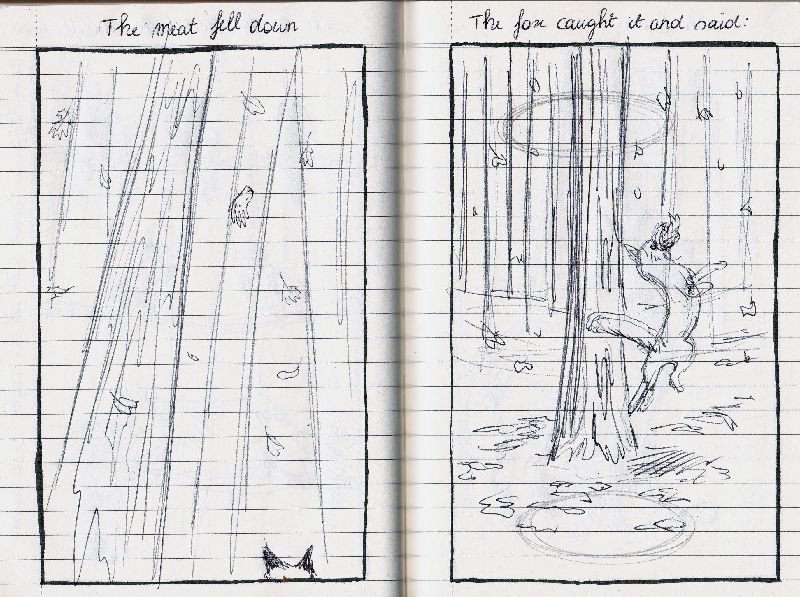 The meat fell down
The fox caught it and said: